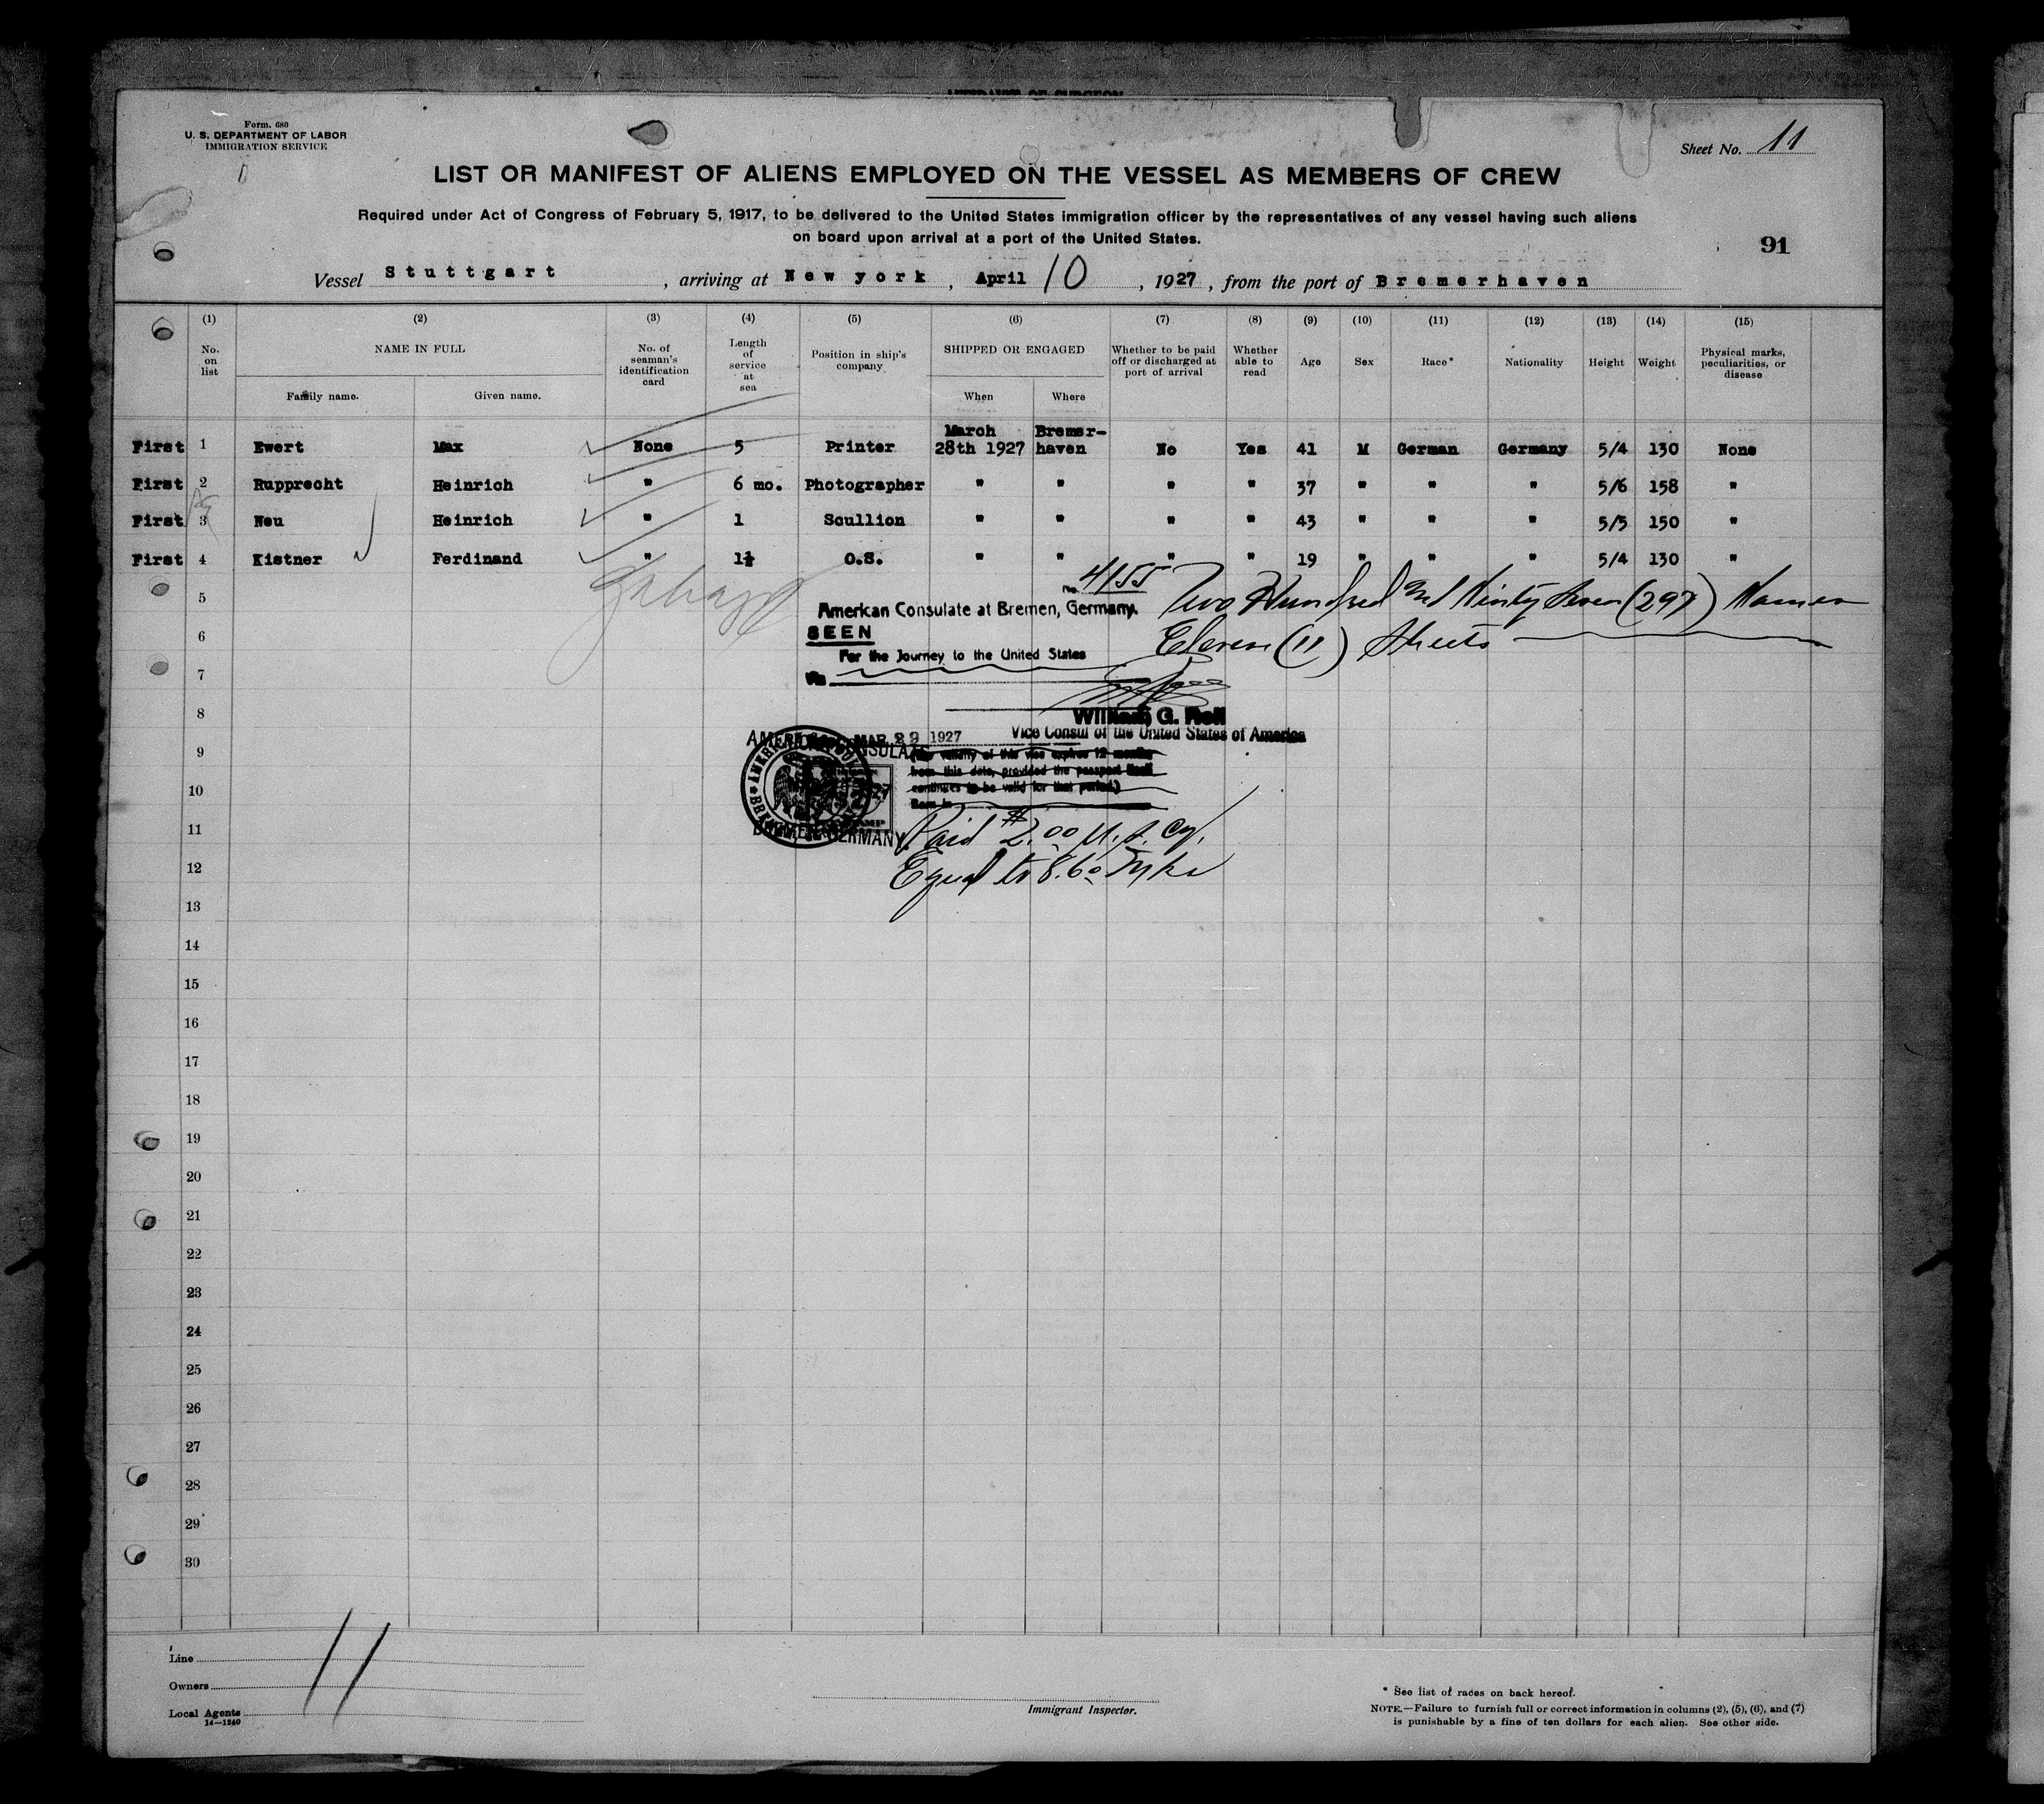 Form. 680
U. S. DEPARTMENT OF LABOR
IMMIGRATION SERVICE
Sheet No. 11
LIST OR MANIFEST OF ALIENS EMPLOYED ON THE VESSEL AS MEMBERS OF CREW
Required under Act of Congress of February 5, 1917, to be delivered to the United States immigration officer by the representatives of any vessel having such aliens
on board upon arrival at a port of the United States.
91
Vessel Stuttgart, arriving at New york, April 10, 1927, from the port of Bremerhaven
(1) (2) (3) (4) (5) (6) (7) (8) (9) (10) (11) (12) (13) (14) (15)
No. on list
NAME IN FULL
Family name.
Given name.
No. of seaman's identification card
Length of service at sea
Position in ship's company
SHIPPED OR ENGAGED
When
Where
Whether to be paid off or discharged at port of arrival
Whether able to read
Age
Sex
Race*
Nationality
Height
Weight
Physical marks, peculiarities, or disease
First 1 Ewert Max None 5 Printer March 28th 1927 Bremer-haven No Yes 41 M German Germany 5/4 130 None
First 2 Rupprecht Heinrich " 6 mo. Photographer " " " " 37 " " " 5/6 158 "
First 3 Neu Heinrich " 1 Scullion " " " " 43 " " " 5/5 150 "
First 4 Kistner Ferdinand " 1½ O.S. " " " " 19 " " " 5/4 130 "
5
No. 4155
American Consulate at Bremen, Germany.
Two Hundred and Ninty Seven (297) Names
6
SEEN
Eleven (11) Sheets
For the Journey to the United States
7
Via
8
William G.
AMERICAN CONSULATE
MAR 29 1927
Vice Consul of the United States of America
9
(The validity of this vise expires 12 months
from this date, provided the passport itself
10
continues to be valid for that period.)
11
BREMEN GERMANY
Paid $2.00 U.S. Cy.
12
Equal to 8.60
13
14
15
16
17
18
19
20
21
22
23
24
25
26
27
28
29
30
11
Line
Owners
Local Agents
14—1240
Immigrant Inspector.
* See list of races on back hereof.
NOTE.—Failure to furnish full or correct information in columns (2), (5), (6), and (7)
is punishable by a fine of ten dollars for each alien. See other side.